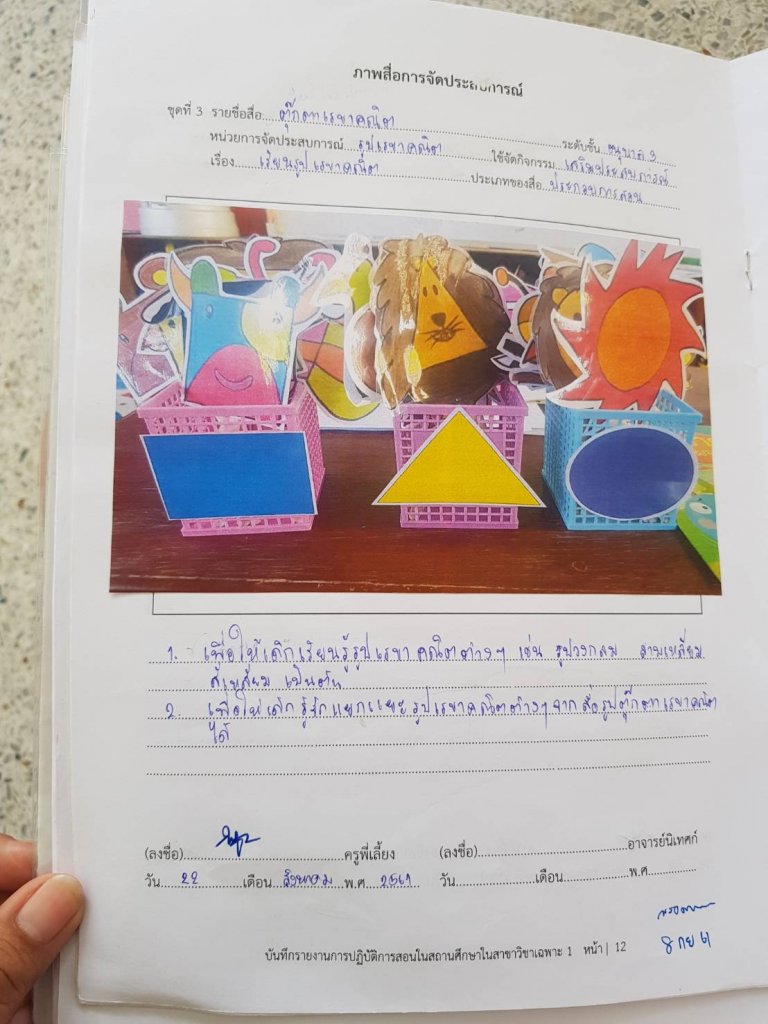 ภาพสื่อการจัดประสบการณ์
ชุดที่ 3 รายชื่อสื่อ ตุ๊กตาเรขาคณิต ระดับชั้น อนุบาล 3
หน่วยการจัดประสบการณ์ รูปเรขาคณิต ใช้จัดกิจกรรม เสริมประสบการณ์
เรื่อง เรียนรูปเรขาคณิต ประเภทของสื่อ ประกอบการสอน
1. เพื่อให้เด็กเรียนรู้รูปเรขาคณิตต่างๆ เช่น รูปวงกลม สามเหลี่ยม
สี่เหลี่ยม เป็นต้น
2. เพื่อให้เด็กรู้จักแยกแยะรูปเรขาคณิตต่างๆจากสื่อรูปตุ๊กตาเรขาคณิต
ได้
(ลงชื่อ) ครูพี่เลี้ยง (ลงชื่อ) อาจารย์นิเทศก์
วัน 22 เดือน สิงหาคม พ.ศ 2561 วัน เดือน พ.ศ
8 กย 61
บันทึกรายงานการปฏิบัติการสอนในสถานศึกษาในสาขาวิชาเฉพาะ 1 หน้า | 12